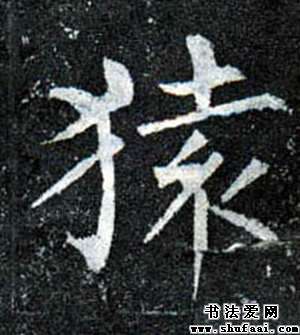 猿
书法爱网
www.shufaai.com